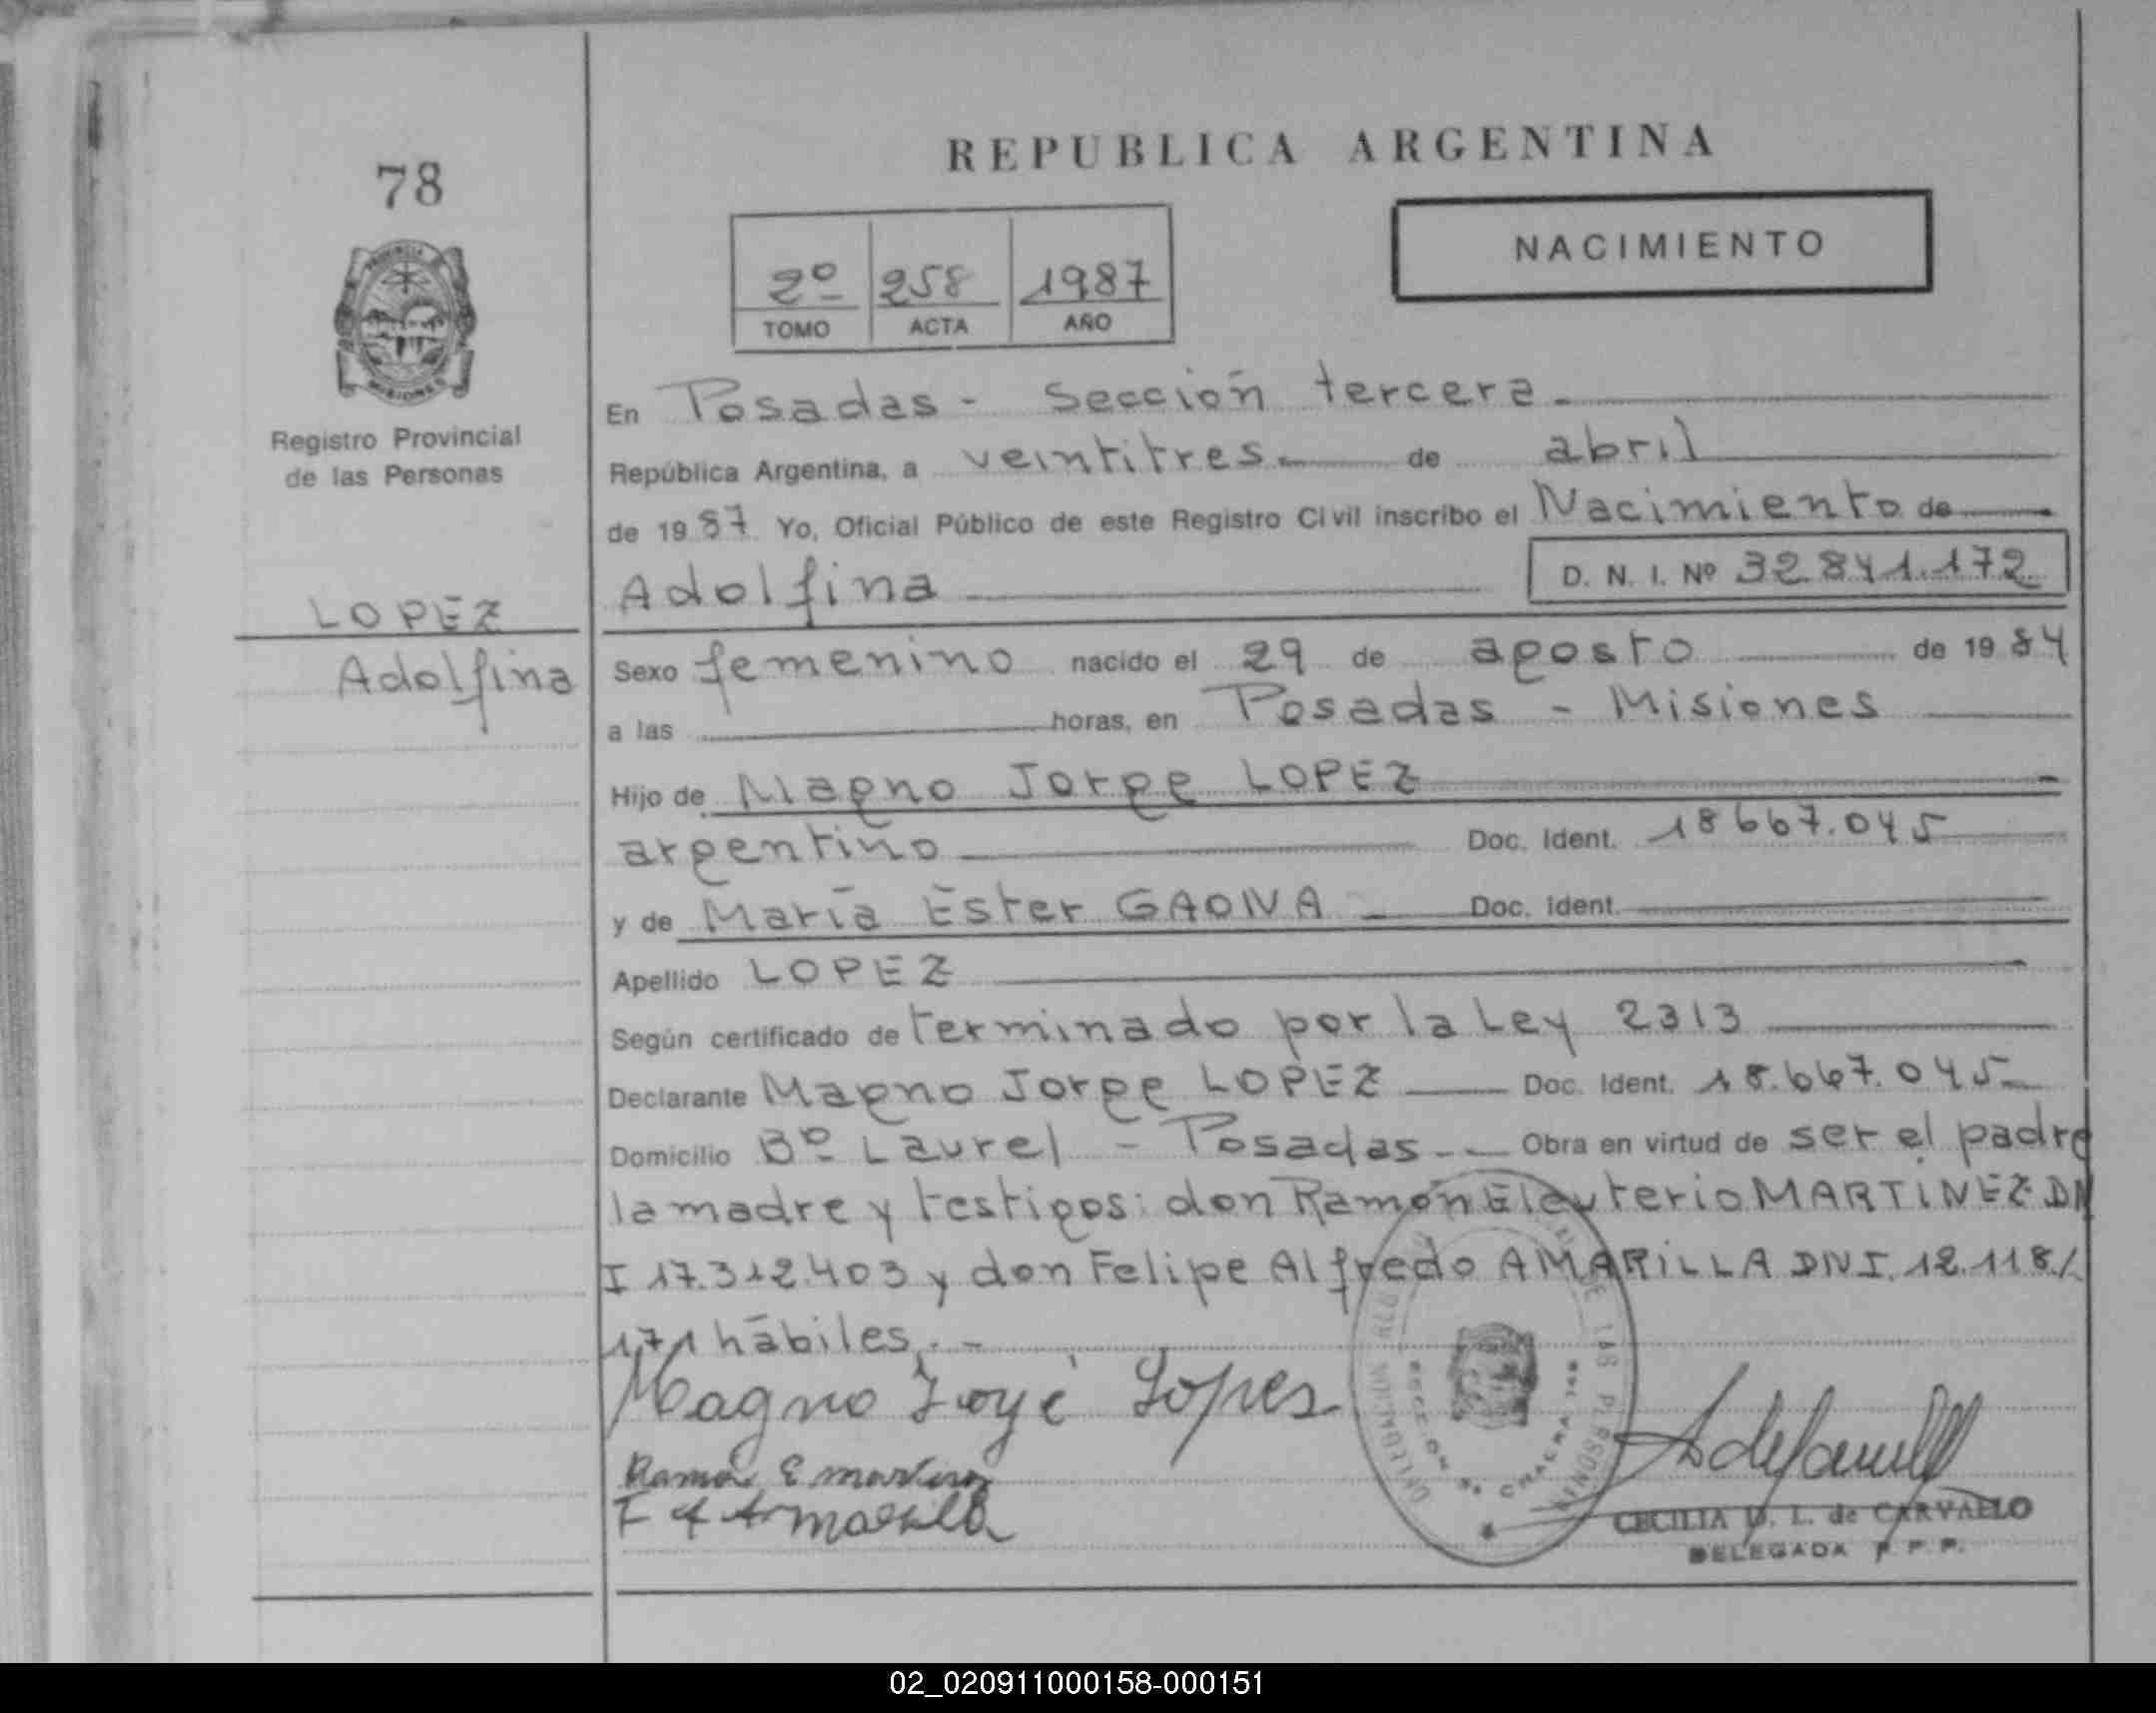 REPUBLICA ARGENTINA
78
NACIMIENTO
2º 258 1987
TOMO ACTA AÑO
PROVINCIA
MISIONES
Registro Provincial
de las Personas
LOPEZ
Adolfina
En Posadas - Sección tercera.
República Argentina, a veintitres. de abril
de 1987 Yo, Oficial Público de este Registro Civil inscribo el Nacimiento de
Adolfina D. N. I. Nº 32.841.172
Sexo femenino nacido el 29 de agosto de 1984
a las horas, en Posadas - Misiones
Hijo de Magno Jorge LOPEZ
argentino Doc. Ident. 18667.045
y de María Ester GAONA Doc. Ident.
Apellido LOPEZ
Según certificado de terminado por la Ley 2313
Declarante Magno Jorge LOPEZ Doc. Ident. 18.667.045
Domicilio Bº Laurel - Posadas.- Obra en virtud de ser el padre
la madre y testigos: don Ramón Eleuterio MARTINEZ DN
I 17.312.403 y don Felipe Alfredo AMARILLA DNI. 12.118./
171 hábiles.-
Magno Lopes
Ramón E Martinez
F A Amarilla
DE LAS PERSONAS
CHACRA
CECILIA D. L. de CARVALLO
DELEGADA R. P. P.
02_020911000158-000151